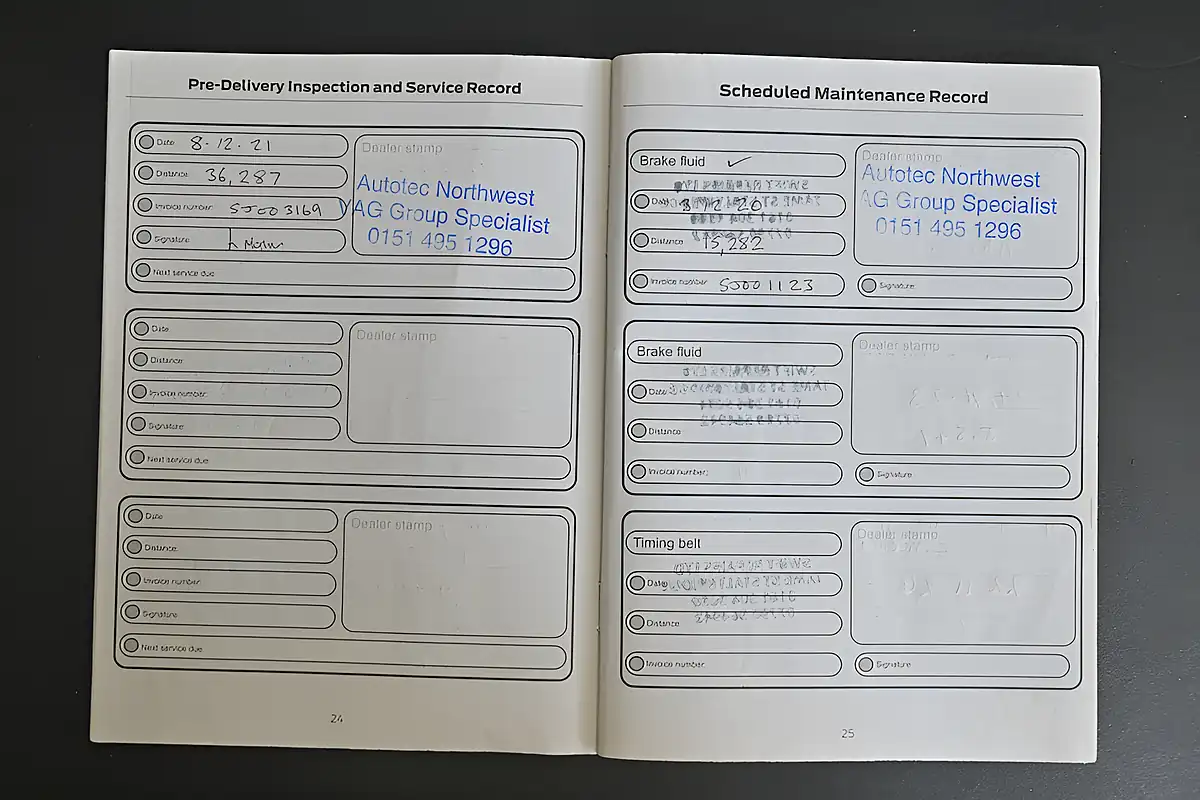 Pre-Delivery Inspection and Service Record
Date 8.12.21
Distance 36,287
Invoice number SJ003169
Signature
Next service due
Dealer stamp
Autotec Northwest
VAG Group Specialist
0151 495 1296
Date
Distance
Invoice number
Signature
Next service due
Dealer stamp
Date
Distance
Invoice number
Signature
Next service due
Dealer stamp
24
Scheduled Maintenance Record
Brake fluid ✓
Date
Distance 15,282
Invoice number SJ001123
Dealer stamp
Autotec Northwest
AG Group Specialist
0151 495 1296
Signature
Brake fluid
Date
Distance
Invoice number
Dealer stamp
Signature
Timing belt
Date
Distance
Invoice number
Dealer stamp
Signature
25